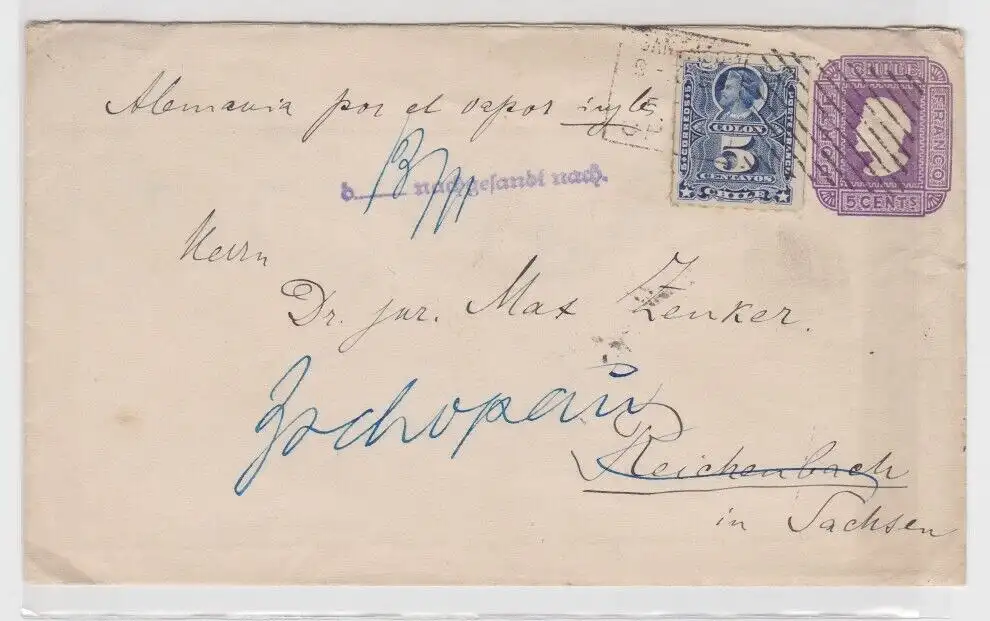 Alemania por el vapor ingles.
CORREOS POSTE FRANCO
COLON
5
CENTAVOS
CHILE
CHILE
FRANCO
5 CENTS
d. nachgesandt nach.
Herrn
Dr. jur. Max Zenker.
Zschopau
Reichenbach
in Sachsen